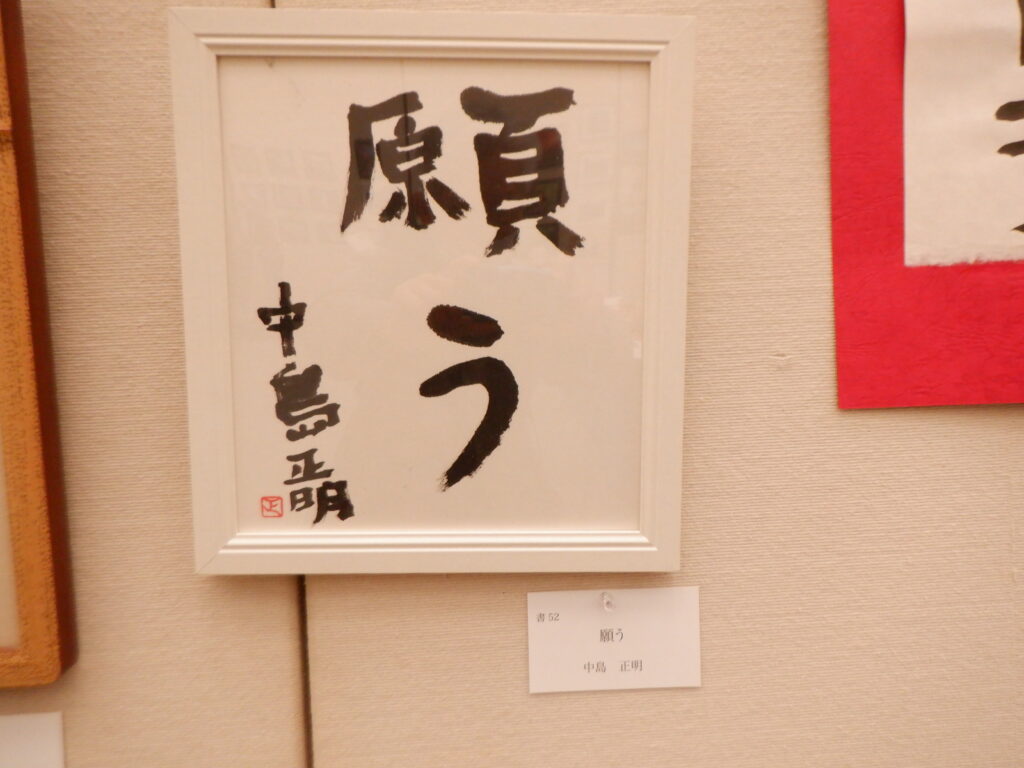 願う
中島正明
正
書52
願う
中島 正明